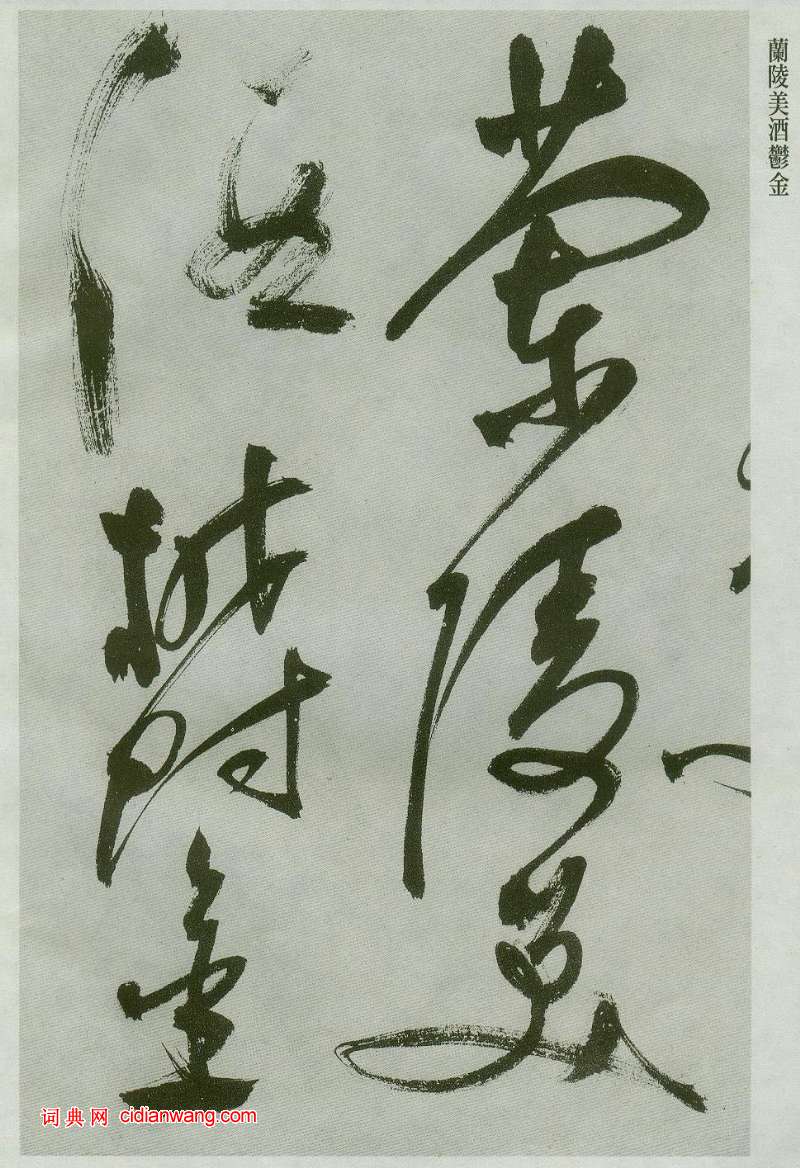 蘭陵美酒鬱金
蘭陵美
酒鬱金
词典网 cidianwang.com